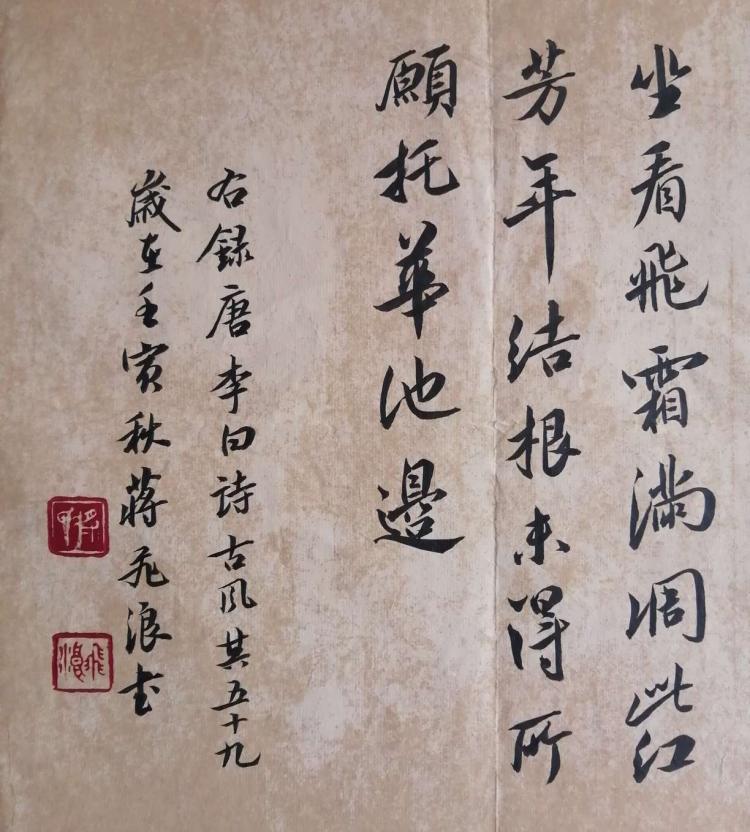 坐看飛霜滿凋此江
芳年结根未得所
願托華池邊
右録唐李白詩古风其五十九
歲在壬寅秋蔣飛浪书